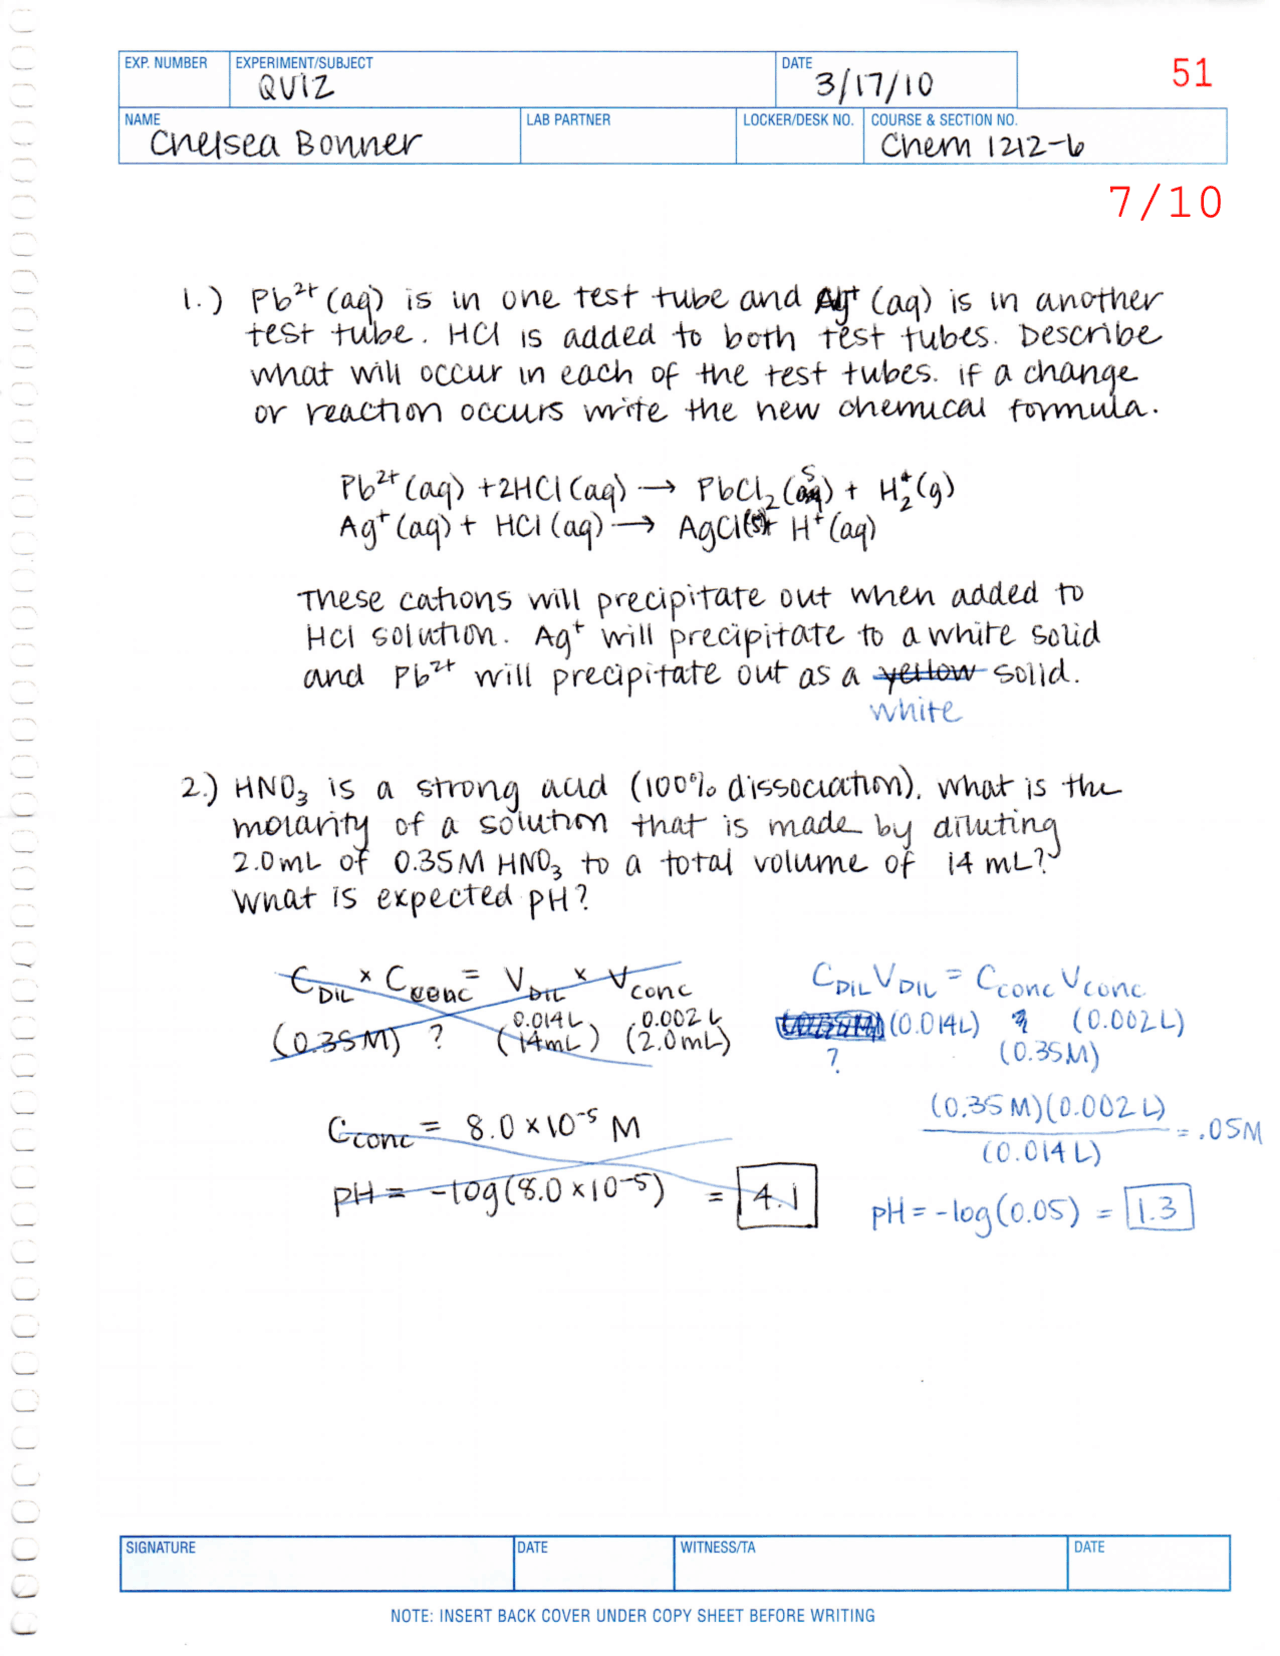 EXP. NUMBER EXPERIMENT/SUBJECT DATE 51
QUIZ 3/17/10
NAME LAB PARTNER LOCKER/DESK NO. COURSE & SECTION NO.
Chelsea Bonner Chem 1212-6
7/10
1.) Pb²⁺(aq) is in one test tube and Ag⁺ (aq) is in another
test tube. HCl is added to both test tubes. Describe
what will occur in each of the test tubes. If a change
or reaction occurs write the new chemical formula.
Pb²⁺(aq) + 2HCl(aq) → PbCl₂(s) + H₂⁺(g)
Ag⁺(aq) + HCl(aq) → AgCl(s) + H⁺(aq)
These cations will precipitate out when added to
HCl solution. Ag⁺ will precipitate to a white solid
and Pb²⁺ will precipitate out as a yellow solid.
white
2.) HNO₃ is a strong acid (100% dissociation). What is the
molarity of a solution that is made by diluting
2.0mL of 0.35M HNO₃ to a total volume of 14 mL?
What is expected pH?
C_DIL × C_conc = V_DIL × V_conc
0.014L 0.002L
(0.35M) ? (14mL) (2.0mL)
C_conc = 8.0 × 10⁻⁵ M
pH = -log(8.0 × 10⁻⁵) = 4.1
C_DIL V_DIL = C_conc V_conc
(0.014L) (0.002L)
? (0.35M)
(0.35M)(0.002L)
= .05M
(0.014L)
pH = -log(0.05) = 1.3
SIGNATURE DATE WITNESS/TA DATE
NOTE: INSERT BACK COVER UNDER COPY SHEET BEFORE WRITING